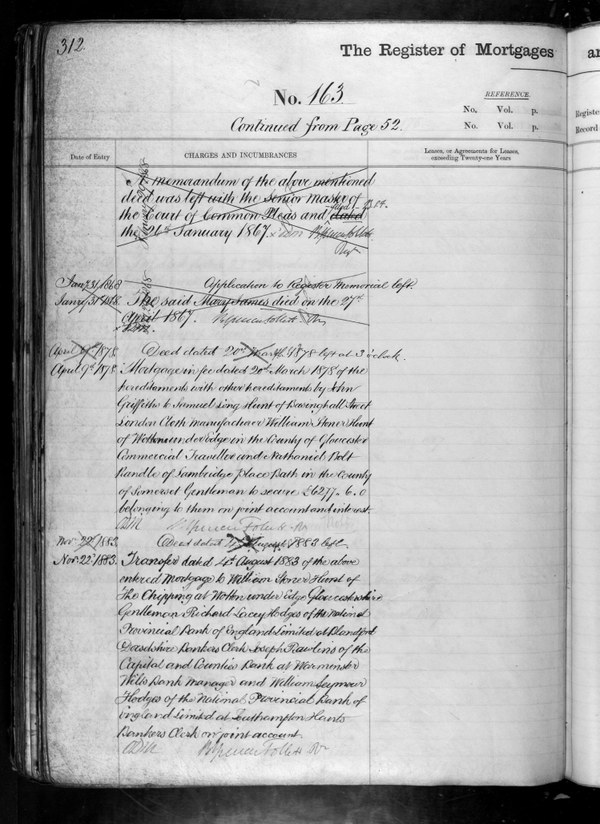 312.
The Register of Mortgages
an
No. 163
REFERENCE.
No. Vol. p.
Continued from Page 52.
No. Vol. p.
Registe
Record
Date of Entry
CHARGES AND INCUMBRANCES
Leases, or Agreements for Leases,
exceeding Twenty-one Years
A memorandum of the above mentioned
deed was left with the Senior Master of
the Court of Common Pleas and dated
the 26th January 1867.
Jany 31 1868 Application to Register Memorial left.
Jany 31st 1868. The said Mary James died on the 27th
April 1867.
April 9th 1878 Deed dated 20th March 1878 left at 3 o'clock.
April 9th 1878 Mortgage in fee dated 20th March 1878 of the
hereditaments with other hereditaments by John
Griffiths to Samuel Long Hunt of Basinghall Street
London Cloth Manufacturer William Stoner Hunt
of Wotton under edge in the County of Gloucester
Commercial Traveller and Nathaniel Bolt
Rundle of Sambridge Place Bath in the County
of Somerset Gentleman to secure £6277. 6. 0
belonging to them on joint account and interest.
Nov 22 1883 Deed dated August 1883 left
Nov 22nd 1883. Transfer dated 4th August 1883 of the above
entered Mortgage to William Stoner Hunt of
The Chipping at Wotton under Edge Gloucestershire
Gentleman Richard Lacey Hodges of the National
Provincial Bank of England Limited at Blandford
Dorsetshire Bankers Clerk Joseph Rawlins of the
Capital and Counties Bank at Warminster
Wilts Bank Manager and William Seymour
Hodges of the National Provincial Bank of
England Limited at Southampton Hants
Bankers Clerk on joint account